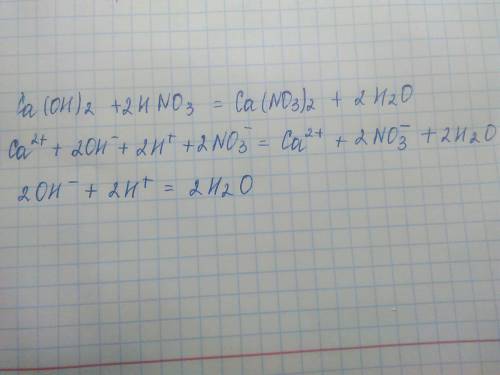 Ca(OH)2 + 2HNO3 = Ca(NO3)2 + 2H2O
Ca²⁺ + 2OH⁻ + 2H⁺ + 2NO3⁻ = Ca²⁺ + 2NO3⁻ + 2H2O
2OH⁻ + 2H⁺ = 2H2O